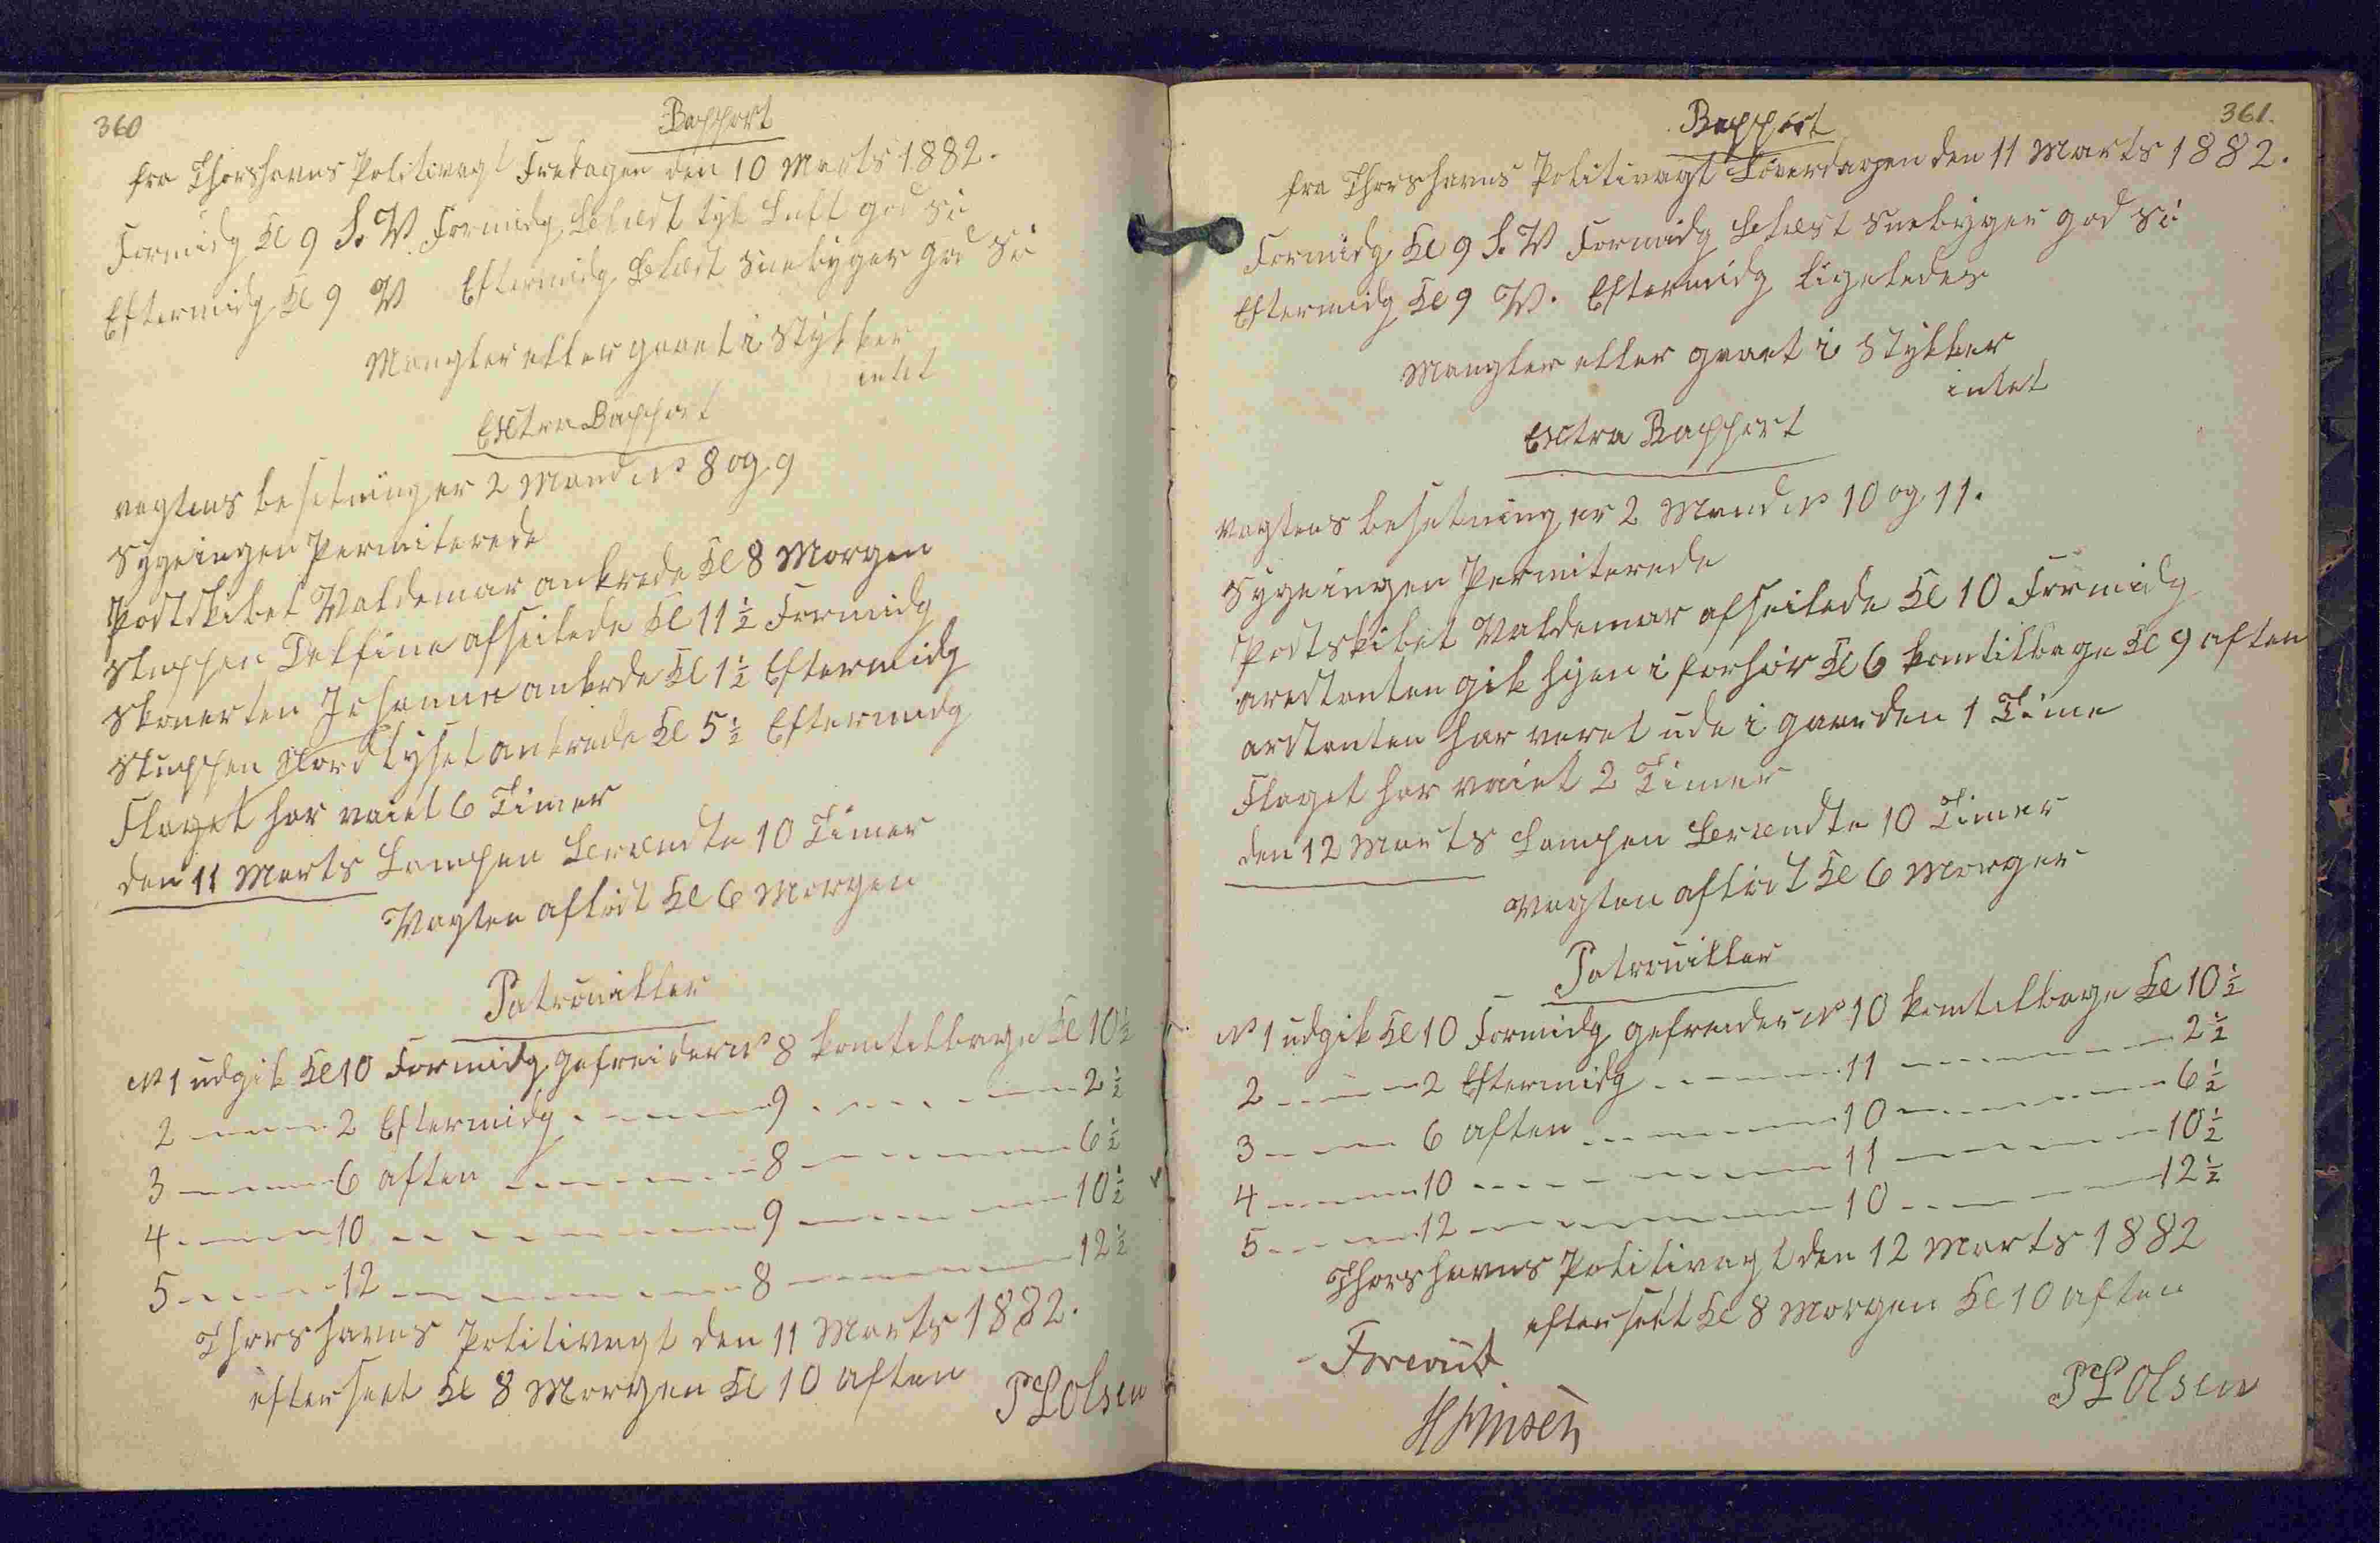 360
Rapport
fra Thorshavns Politivagt Fredagen den 10 Marts 1882.
Formidg Kl 9 S. V. Formidg Blæst tyk Luft god Sü
Eftermidg Kl 9 V Eftermidg Blæst Snebyger god Sü
Mangler eller gaaet i Stykker
intet
Exctra Rapport
vagtens besetning er 2 Mand No 8 og 9
Syge ingen Permiterede
Postskibet Valdemar ankrede Kl 8 Morgen
Sluppen Delfine afseilede Kl 11½ Formidg
Skonerten Johanne ankrde Kl 1½ Eftermidg
Sluppen Nordlyset ankrede Kl 5½ Eftermidg
Flaget har vaiet 6 Timer
den 11 Marts Lampen Brændte 10 Timer
Vagten afløst Kl 6 Morgen
Patrouiller
No 1 udgik Kl 10 Formidg gefreider No 8 kom tilbage Kl 10½
2 ---- 2 Eftermidg ---- 9 ---- 2½
3 ---- 6 aften ---- 8 ---- 6½
4 ---- 10 ---- 9 ---- 10½
5 ---- 12 ---- 8 ---- 12½
Thorshavns Politivagt den 11 Marts 1882.
efterseet Kl 8 Morgen Kl 10 aften
P L Olsen
361.
Rapport
fra Thorshavns Politivagt Löverdagen den 11 Marts 1882.
Formidg Kl 9 S. V Formidg Blæst Snebyger god Sü
Eftermidg Kl 9 V. Eftermidg ligeledes
Mangler eller gaaet i Stykker
intet
Exctra Rapport
vagtens besetning er 2 Mand No 10 og 11.
Syge ingen Permiterede
Postskibet Valdemar afseilede Kl 10 Formidg
arestanten gik hjen i forhör Kl 6 kom tilbage Kl 9 aften
arstanten har veret ude i gaarden 1 Time
Flaget har vaiet 2 Timer
den 12 Marts Lampen Brændte 10 Timer
Vagten afløst Kl 6 Morgen
Patrouiller
No 1 udgik Kl 10 Formidg gefreider No 10 kom tilbage Kl 10½
2 ---- 2 Eftermidg ---- 11 ---- 2½
3 ---- 6 aften ---- 10 ---- 6½
4 ---- 10 ---- 11 ---- 10½
5 ---- 12 ---- 10 ---- 12½
Thorshavns Politivagt den 12 Marts 1882
efterseet Kl 8 Morgen Kl 10 aften
Forevist
P L Olsen